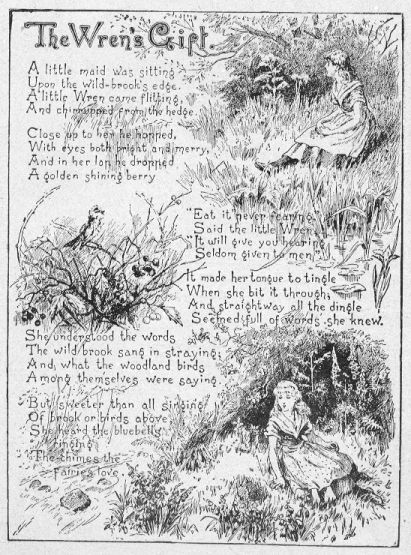 The Wren's Gift.
A little maid was sitting
Upon the wild-brook's edge.
A little Wren came flitting,
And chirrupped from the hedge.
Close up to her he hopped,
With eyes both bright and merry,
And in her lap he dropped
A golden shining berry
"Eat it never fearing,"
Said the little Wren,
"It will give you hearing
Seldom given to men."
It made her tongue to tingle
When she bit it through;
And straightway all the dingle
Seemed full of words she knew.
She understood the words
The wild brook sang in straying;
And, what the woodland birds
Among themselves were saying.
But sweeter than all singing
Of brook or birds above
She heard the bluebells
ringing
The chimes the
Fairies love.